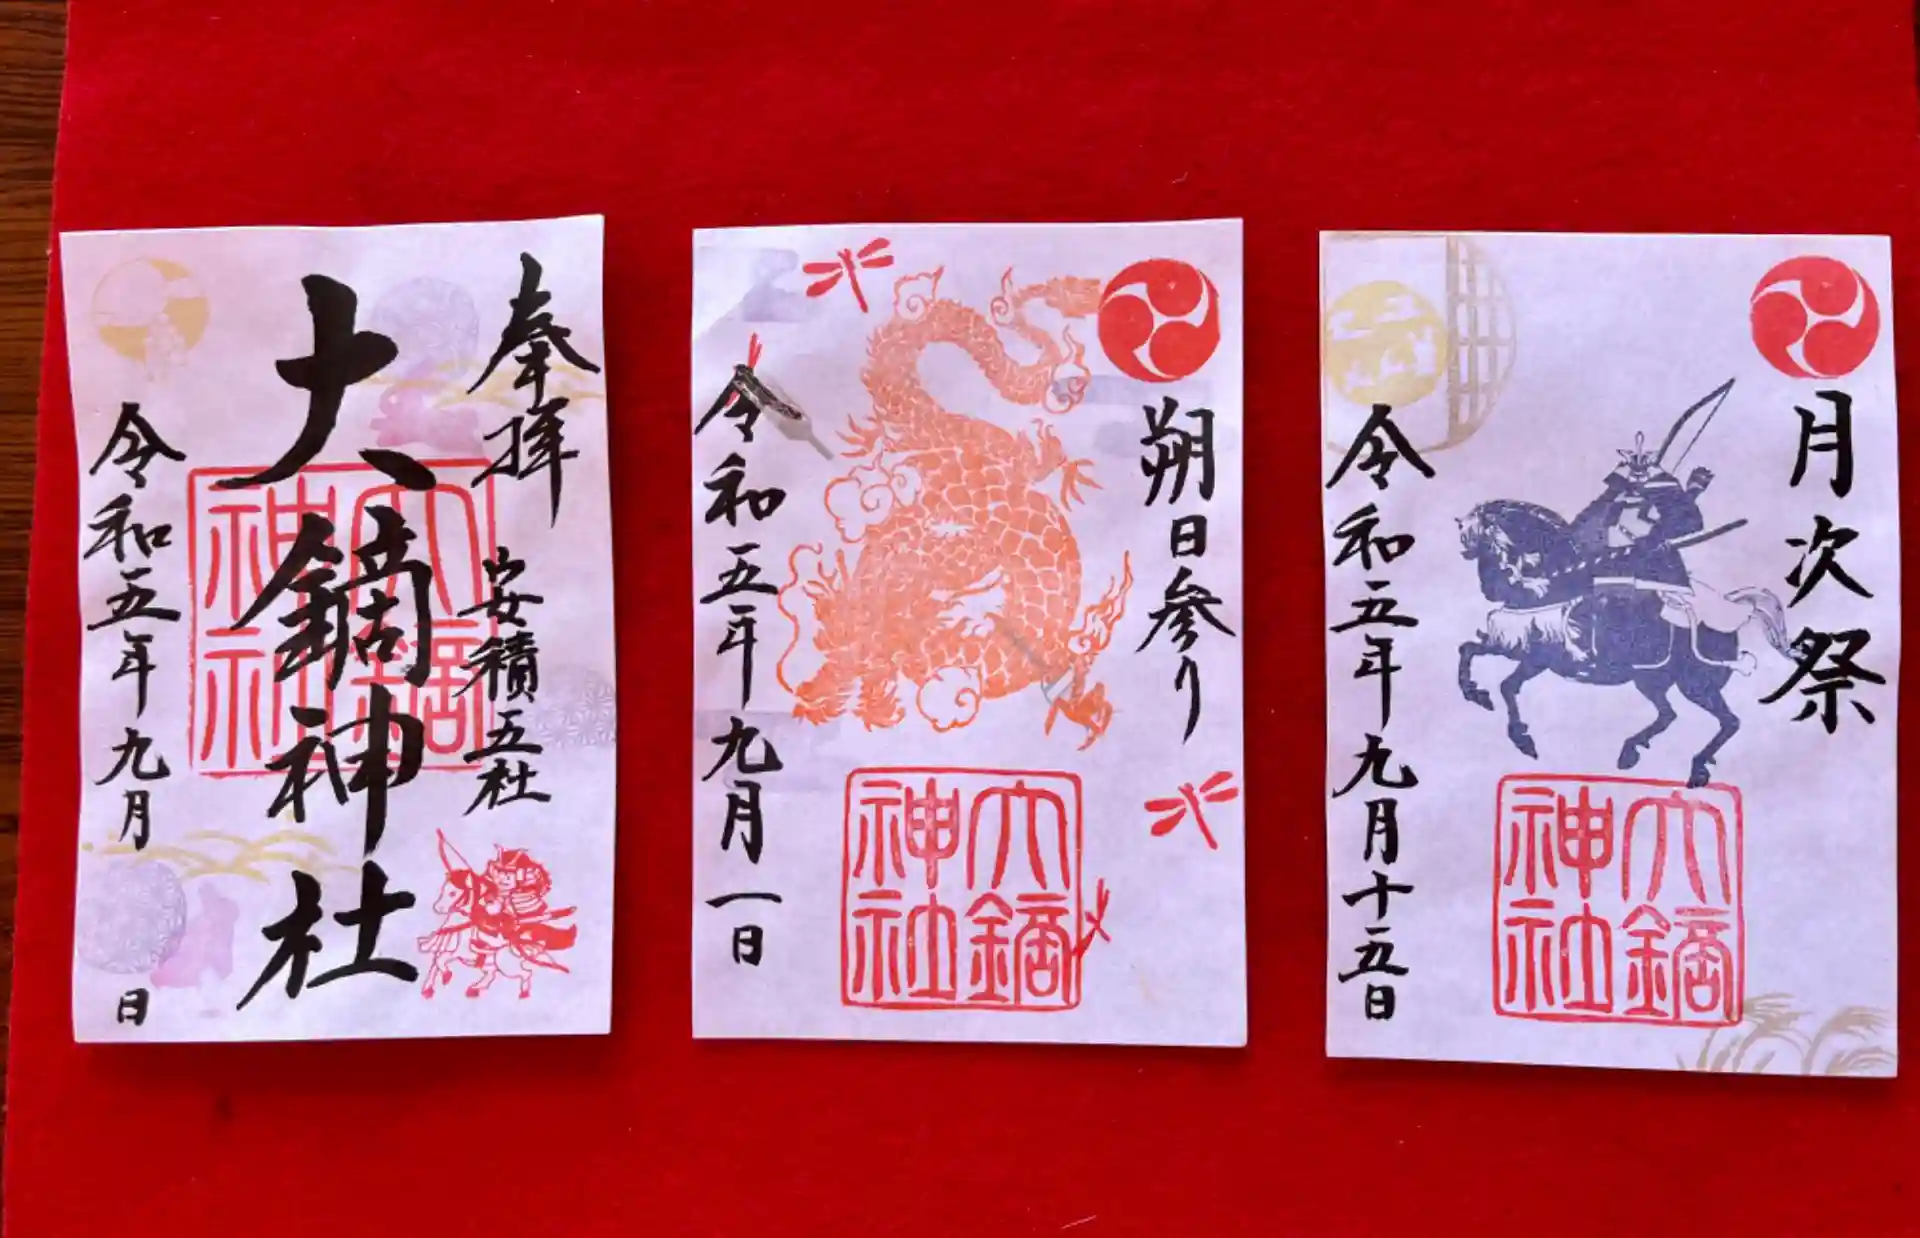 奉拝
安積五社
大鏑神社
大鏑神社
令和五年九月 日
朔日参り
大鏑神社
令和五年九月一日
月次祭
大鏑神社
令和五年九月十五日